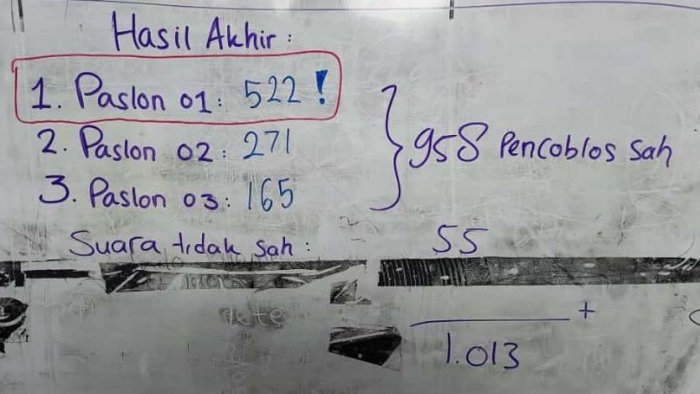 Hasil Akhir :
1. Paslon 01 : 522 !
2. Paslon 02 : 271
3. Paslon 03 : 165
} 958 Pencoblos sah
Suara tidak sah : 55
+
1.013